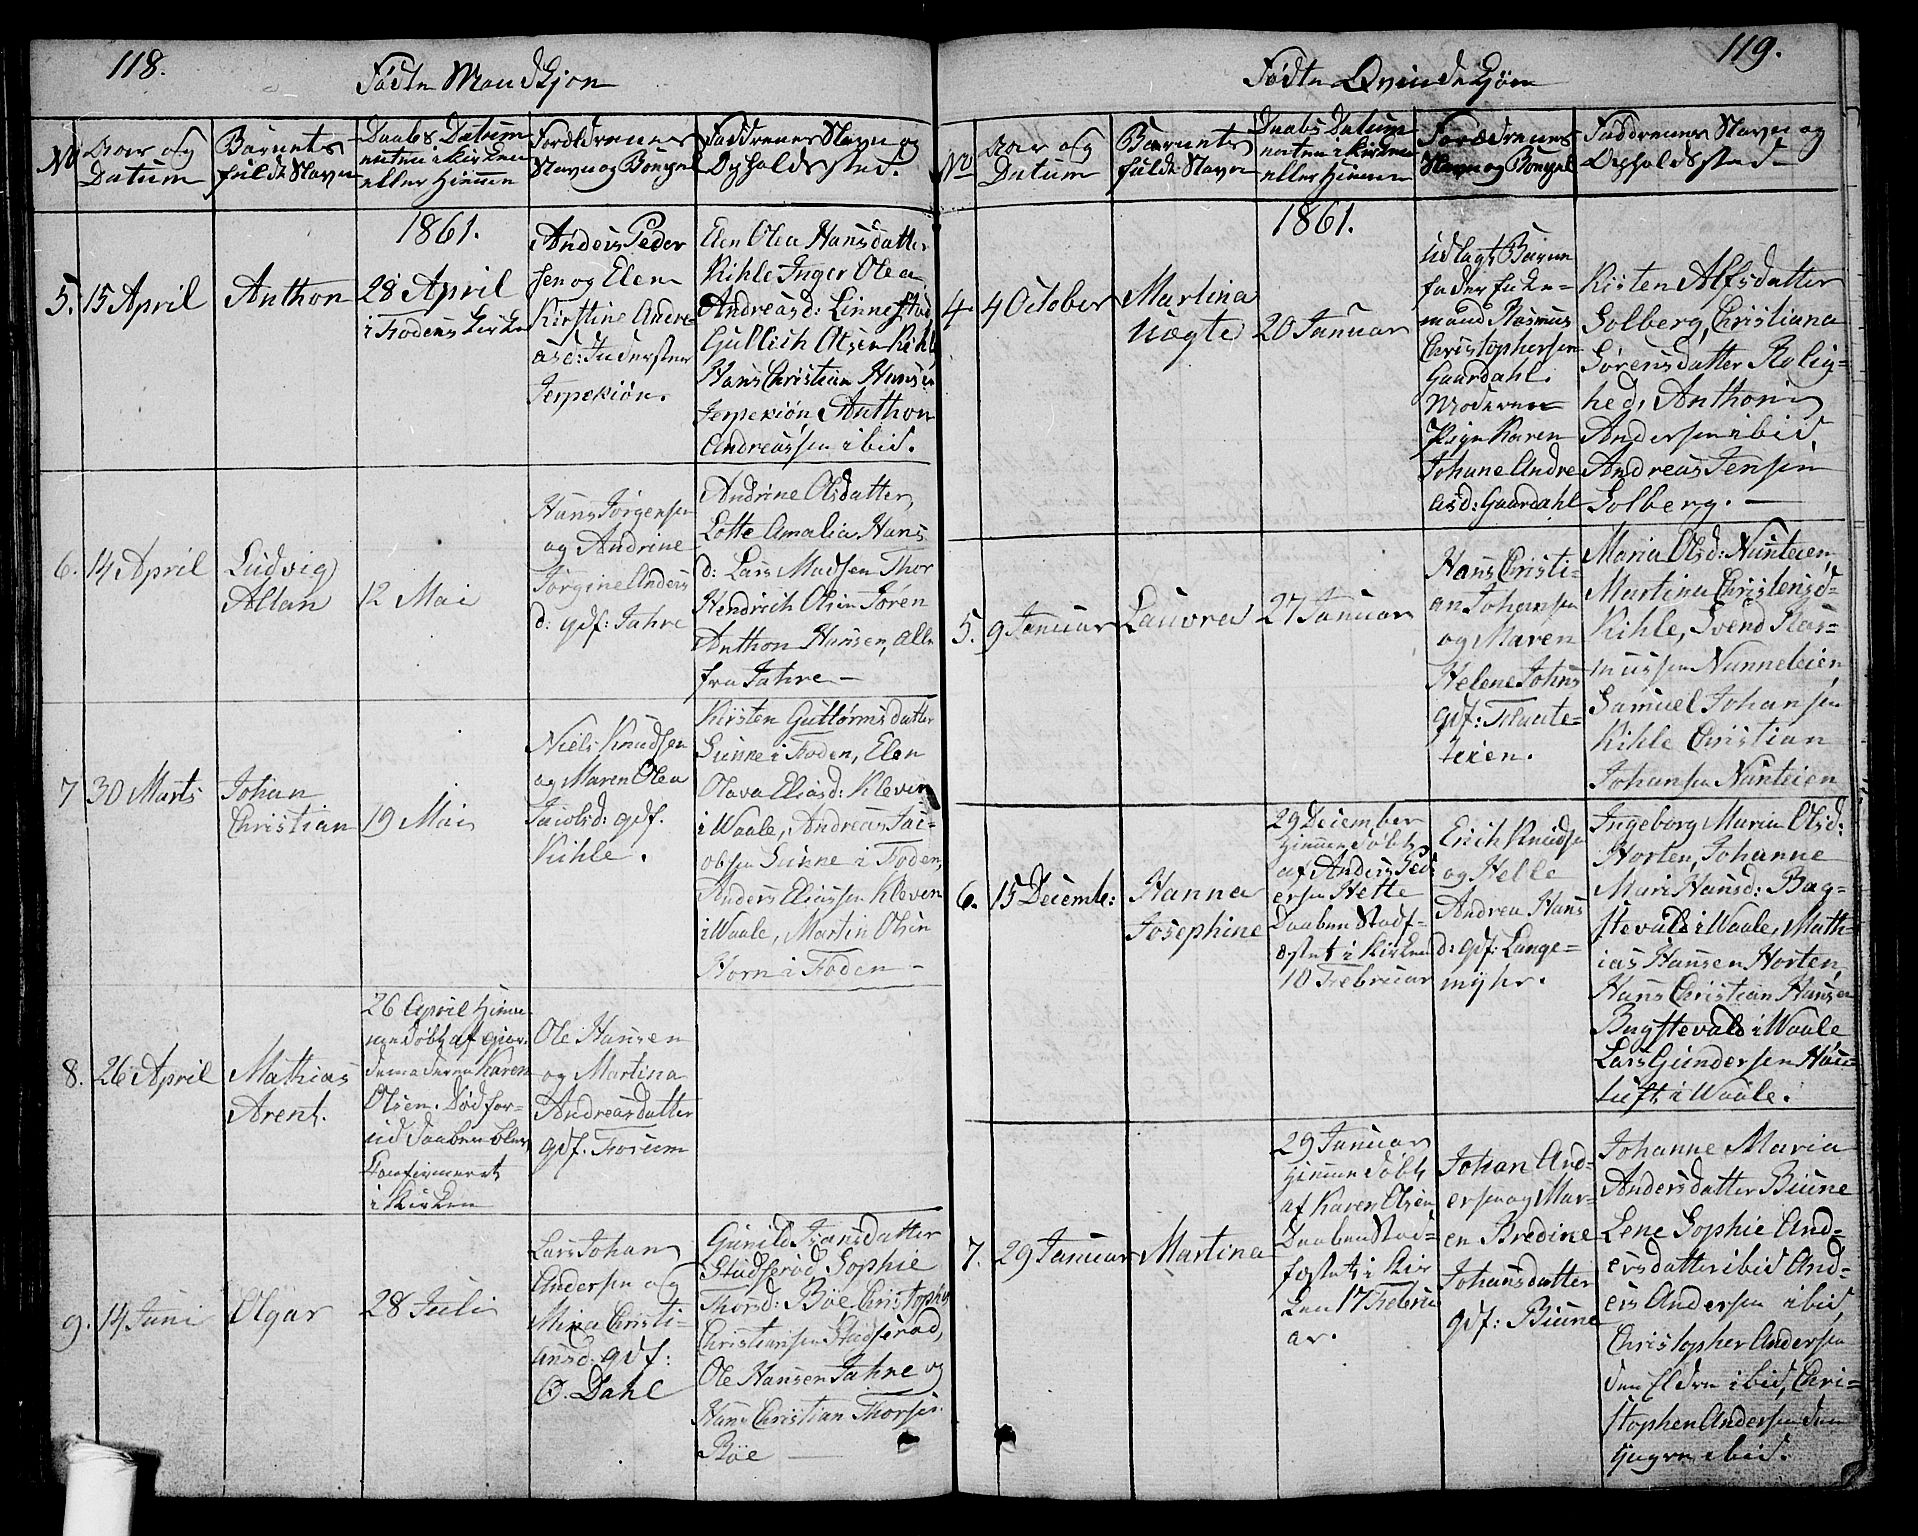 118.
Fødte Mandkjøn
No
Aar og
Datum
Barnets
fulde Navn
Daabs Datum
enten i Kirken
eller Hiemme
Forældrenes
Navn og Bopæl
Faddrenes Navn og
Opholdssted.
1861.
5.
15 April
Anthon
28 April
i Fodens Kirke
Anders Peder
sen og Elen
Kirstine Andre
asd: Inderster
Jerpekiøn.
Elen Olea Hansdatter
Kihle Inger Olea
Andreasd: Linnestad
Gullich Olsen Kihl
Hans Christian Hansen
Jerpekiøn, Anthon
Andreassen ibid.
6.
14 April
Ludvig
Allan
12 Mai
Hans Jørgensen
og Andrine
Jørgine Anders
d: gdf: Jahre
Andrine Olsdatter,
Lotte Amalia Hans
d: Lars Madsen Thor
Hendrich Olsen Søren
Anthon Hansen, alle
fra Jahre —
7
30 Marts
Johan
Christian
19 Mai
Niels Knudsen
og Maren Olea
Jacobsd: gdf.
Kihle.
Kirsten Guttormsdatter
Sunne i Foden, Elen
Olava Eliasd: Kleven
i Waale, Andreas Jac-
obsen Sunne i Foden,
Anders Eliassen Kleven
i Waale, Martin Olsen
Horn i Foden —
8.
26 April
Mathias
Arent.
26 April Hiem-
medøbt af Gjor-
demoderen Karen
Olsen. Død for-
ud Daaben blev
Confirmeret
i Kirken
Ole Hansen
og Martina
Andreasdatter
gdf. Fosum
9.
14 Juni
Olgar
28 Juli
Lars Johan
Andersen og
Mina Christi-
ansd: gdf:
Ø. Dahl
Gunild Fransdatter
Stadserød Sophie
Thorsd: Bøe Christopher
Christiansen Stadserød,
Ole Hansen Jahre og
Hans Christian Thorsen
Bøe —
119.
Fødte Qvindekjøn
No
Aar og
Datum
Barnets
fulde Navn
Daabs Datum
enten i Kirken
eller Hiemme
Forældrenes
Navn og Bopæl
Faddrenes Navn og
Opholdssted
1861.
4.
4 October
Martina
Uægte
20 Januar
Udlagt Barne
fader
mand Rasmus
Christophersen
Gaardahl.
Moderen
Pige Karen
Johane Andre
asd: Gaardahl
Kirsten Alfsdatter
Solberg, Christiana
Sørensdatter Rolig-
hed, Anthon
Andersen ibid,
Andreas Jensen
Solberg. —
5.
9 Januar
Lauvra
27 Januar
Hans Christi-
an Johansen
og Maren
Helene Johns
gdf:
teien.
Maria Olsd: Nunteien,
Martina Christensd-
Kihle, Svend Ras-
mussen Nunneteien,
Samuel Johansen
Kihle Christian
Johansen Nunteien
6.
15 Decembr:
Hanna
Josephine
29 December
Hiemmedøbt
af Anders Ped
ersen Hette
Daaben Stadf-
æstet i Kirken
10 Februar
Erich Knudsen
og Helle
Andrea Hans
d: gdf: Lange-
myhr.
Ingeborg Maria Olsd:
Horten, Johanne
Mari Hansd: Bag-
stevald i Waale, Math-
ias Hansen Horten,
Hans Christian Hansen
Bagstevald i Waale
Lars Gundersen Hau-
tuft i Waale.
7.
29 Januar
Martina
29 Januar
Hiemmedøbt
af Karen Olsen
Daaben Stad-
fæstet i Kir
ken 17 Febru
ar.
Johan And-
ersen og Mar-
en Bredine
Johansdatter
gdf: Biune
Johanne Maria
Andersdatter Biune
Lene Sophie And-
ersdatter ibid And-
ers Andersen ibid,
Christopher Andersen
den Eldre ibid, Chri-
stopher Andersen den
Yngre ibid.